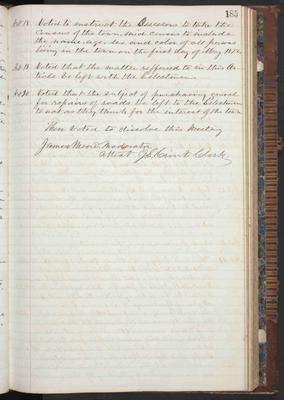 185
Art 18 Voted to instruct the Assessors to take the
census of the town, said census to include
the name, age, sex and color of all persons
living in the town on the first day of May
Art 19 Voted that the matter reffered to in this Ar-
ticle be left with the Selectmen
Art 20 Voted that the subject of purchasing gravel
for repairs of roads be left to the Selectmen
to act as they think for the interest of the town
Then Voted to dissolve this Meeting
James Moore Moderator
Attest Clerk